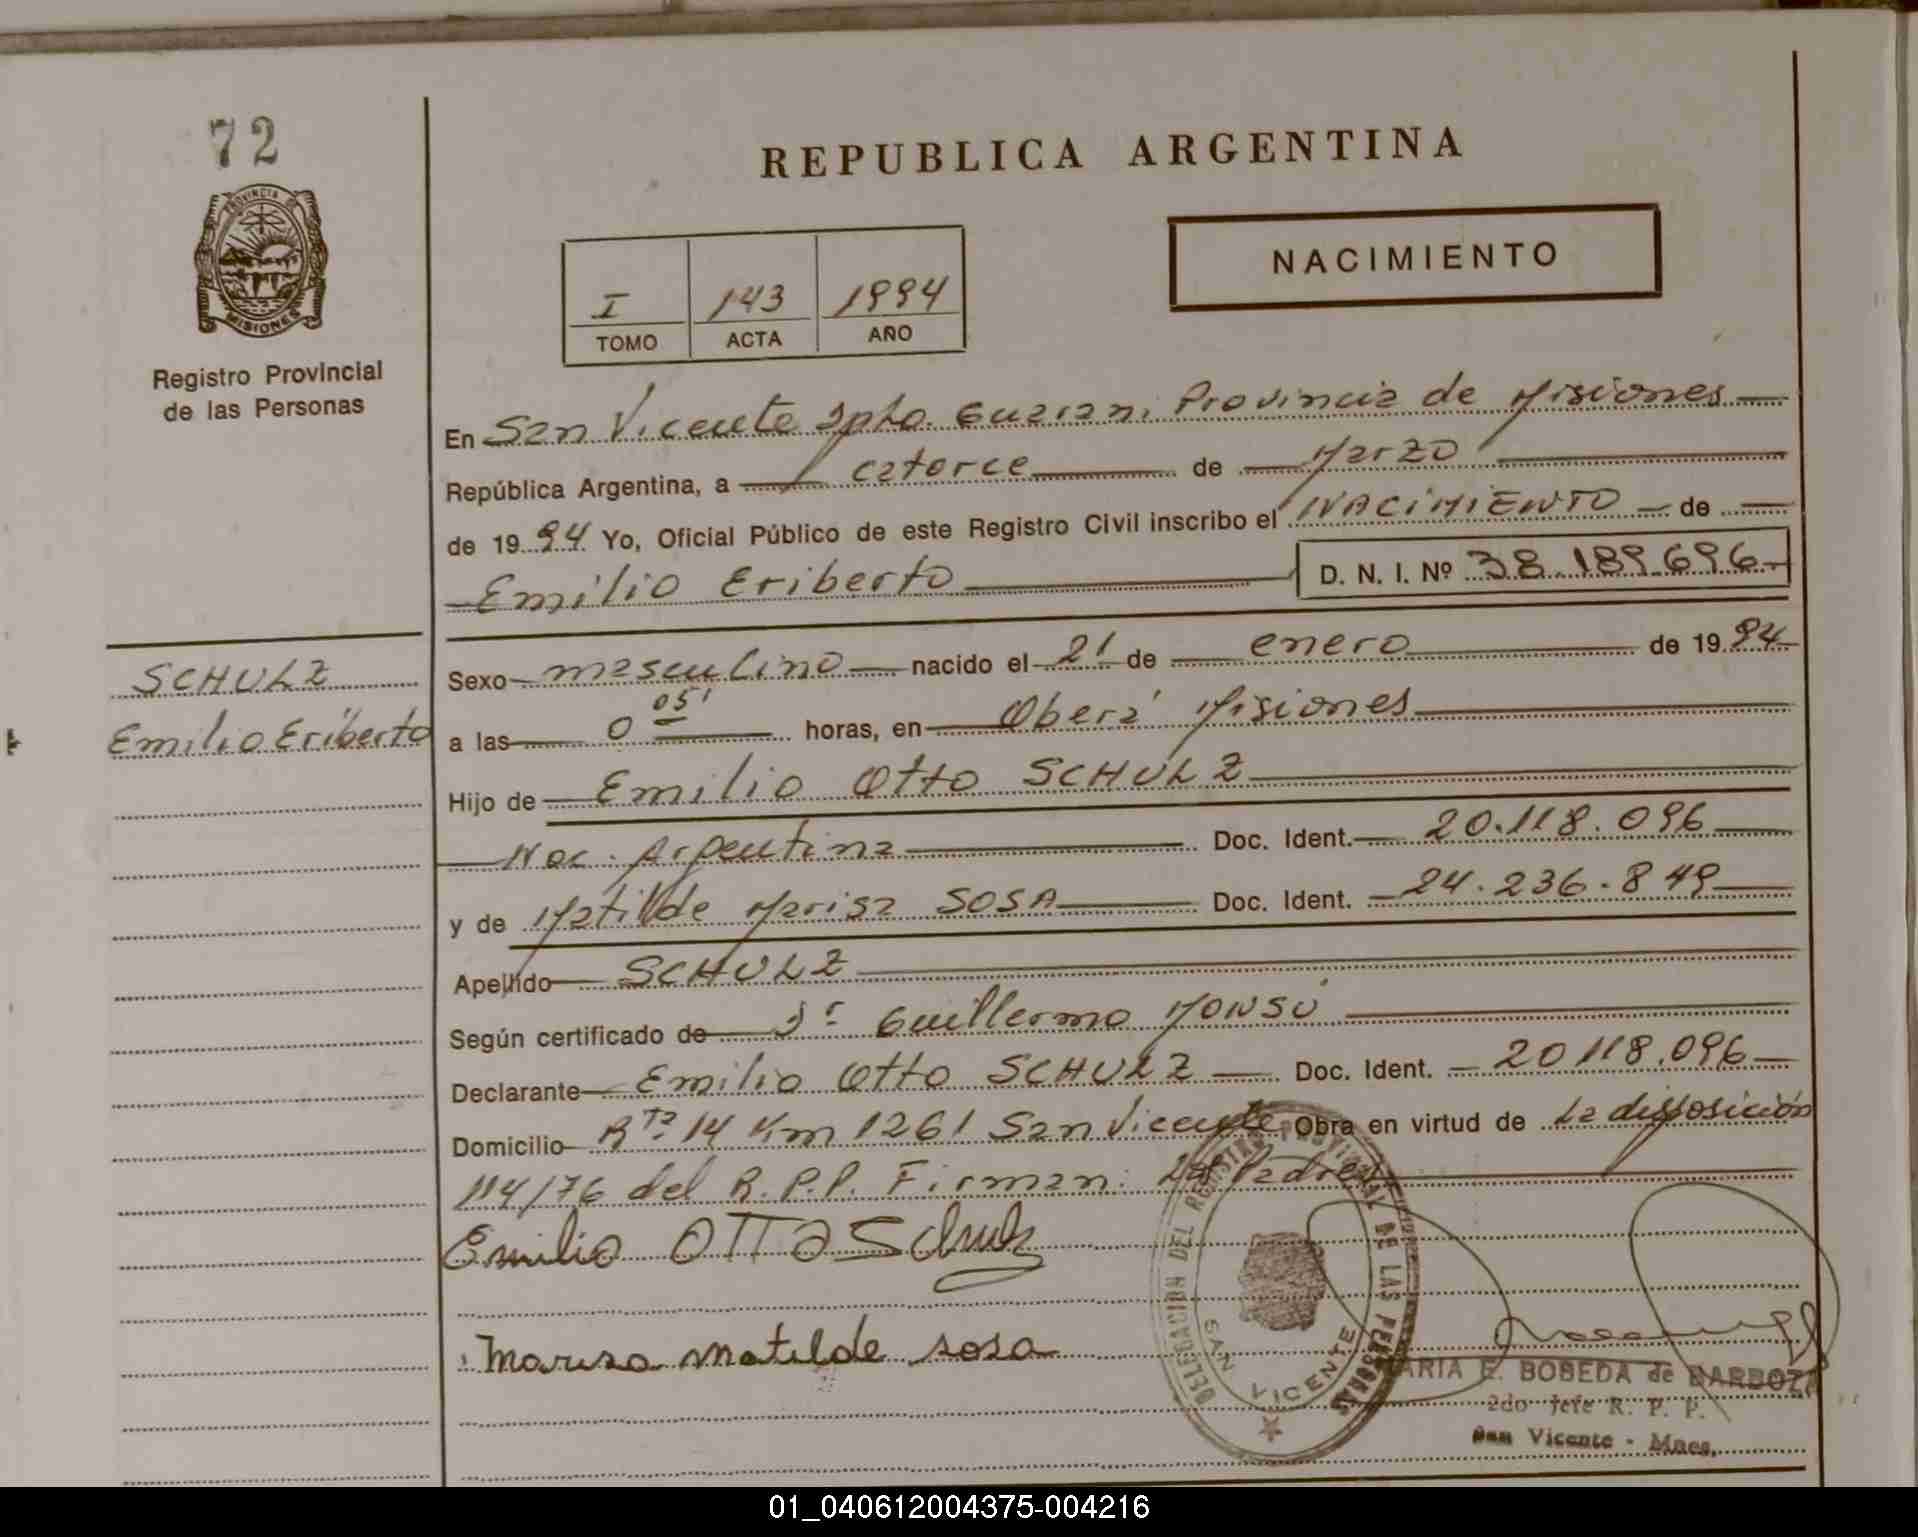 72
PROVINCIA DE
MISIONES
Registro Provincial
de las Personas
SCHULZ
Emilio Eriberto
REPUBLICA ARGENTINA
NACIMIENTO
I 143 1994
TOMO ACTA AÑO
En San Vicente Dpto. Guarani Provincia de Misiones
República Argentina, a catorce de Marzo
de 1994 Yo, Oficial Público de este Registro Civil inscribo el NACIMIENTO de
Emilio Eriberto D. N. I. Nº 38.189.696
Sexo masculino nacido el 21 de enero de 1994
a las 0 05' horas, en Oberá Misiones
Hijo de Emilio Otto SCHULZ
Nac. Argentina Doc. Ident. 20.118.096
y de Matilde Marisa SOSA Doc. Ident. 24.236.849
Apellido SCHULZ
Según certificado de Dr Guillermo MONSÚ
Declarante Emilio Otto SCHULZ Doc. Ident. 20118.096
Domicilio Rta. 14 Km 1261 San Vicente Obra en virtud de La disposición
114/76 del R.P.P. Firman: Los Padres
Emilio OTTO Schulz
Marisa Matilde sosa
DELEGACION DEL REGISTRO PROVINCIAL DE LAS PERSONAS
SAN VICENTE
MARIA E. BOBEDA de BARBOZA
2do Jefe R. P. P.
San Vicente - Mnes.
01_040612004375-004216